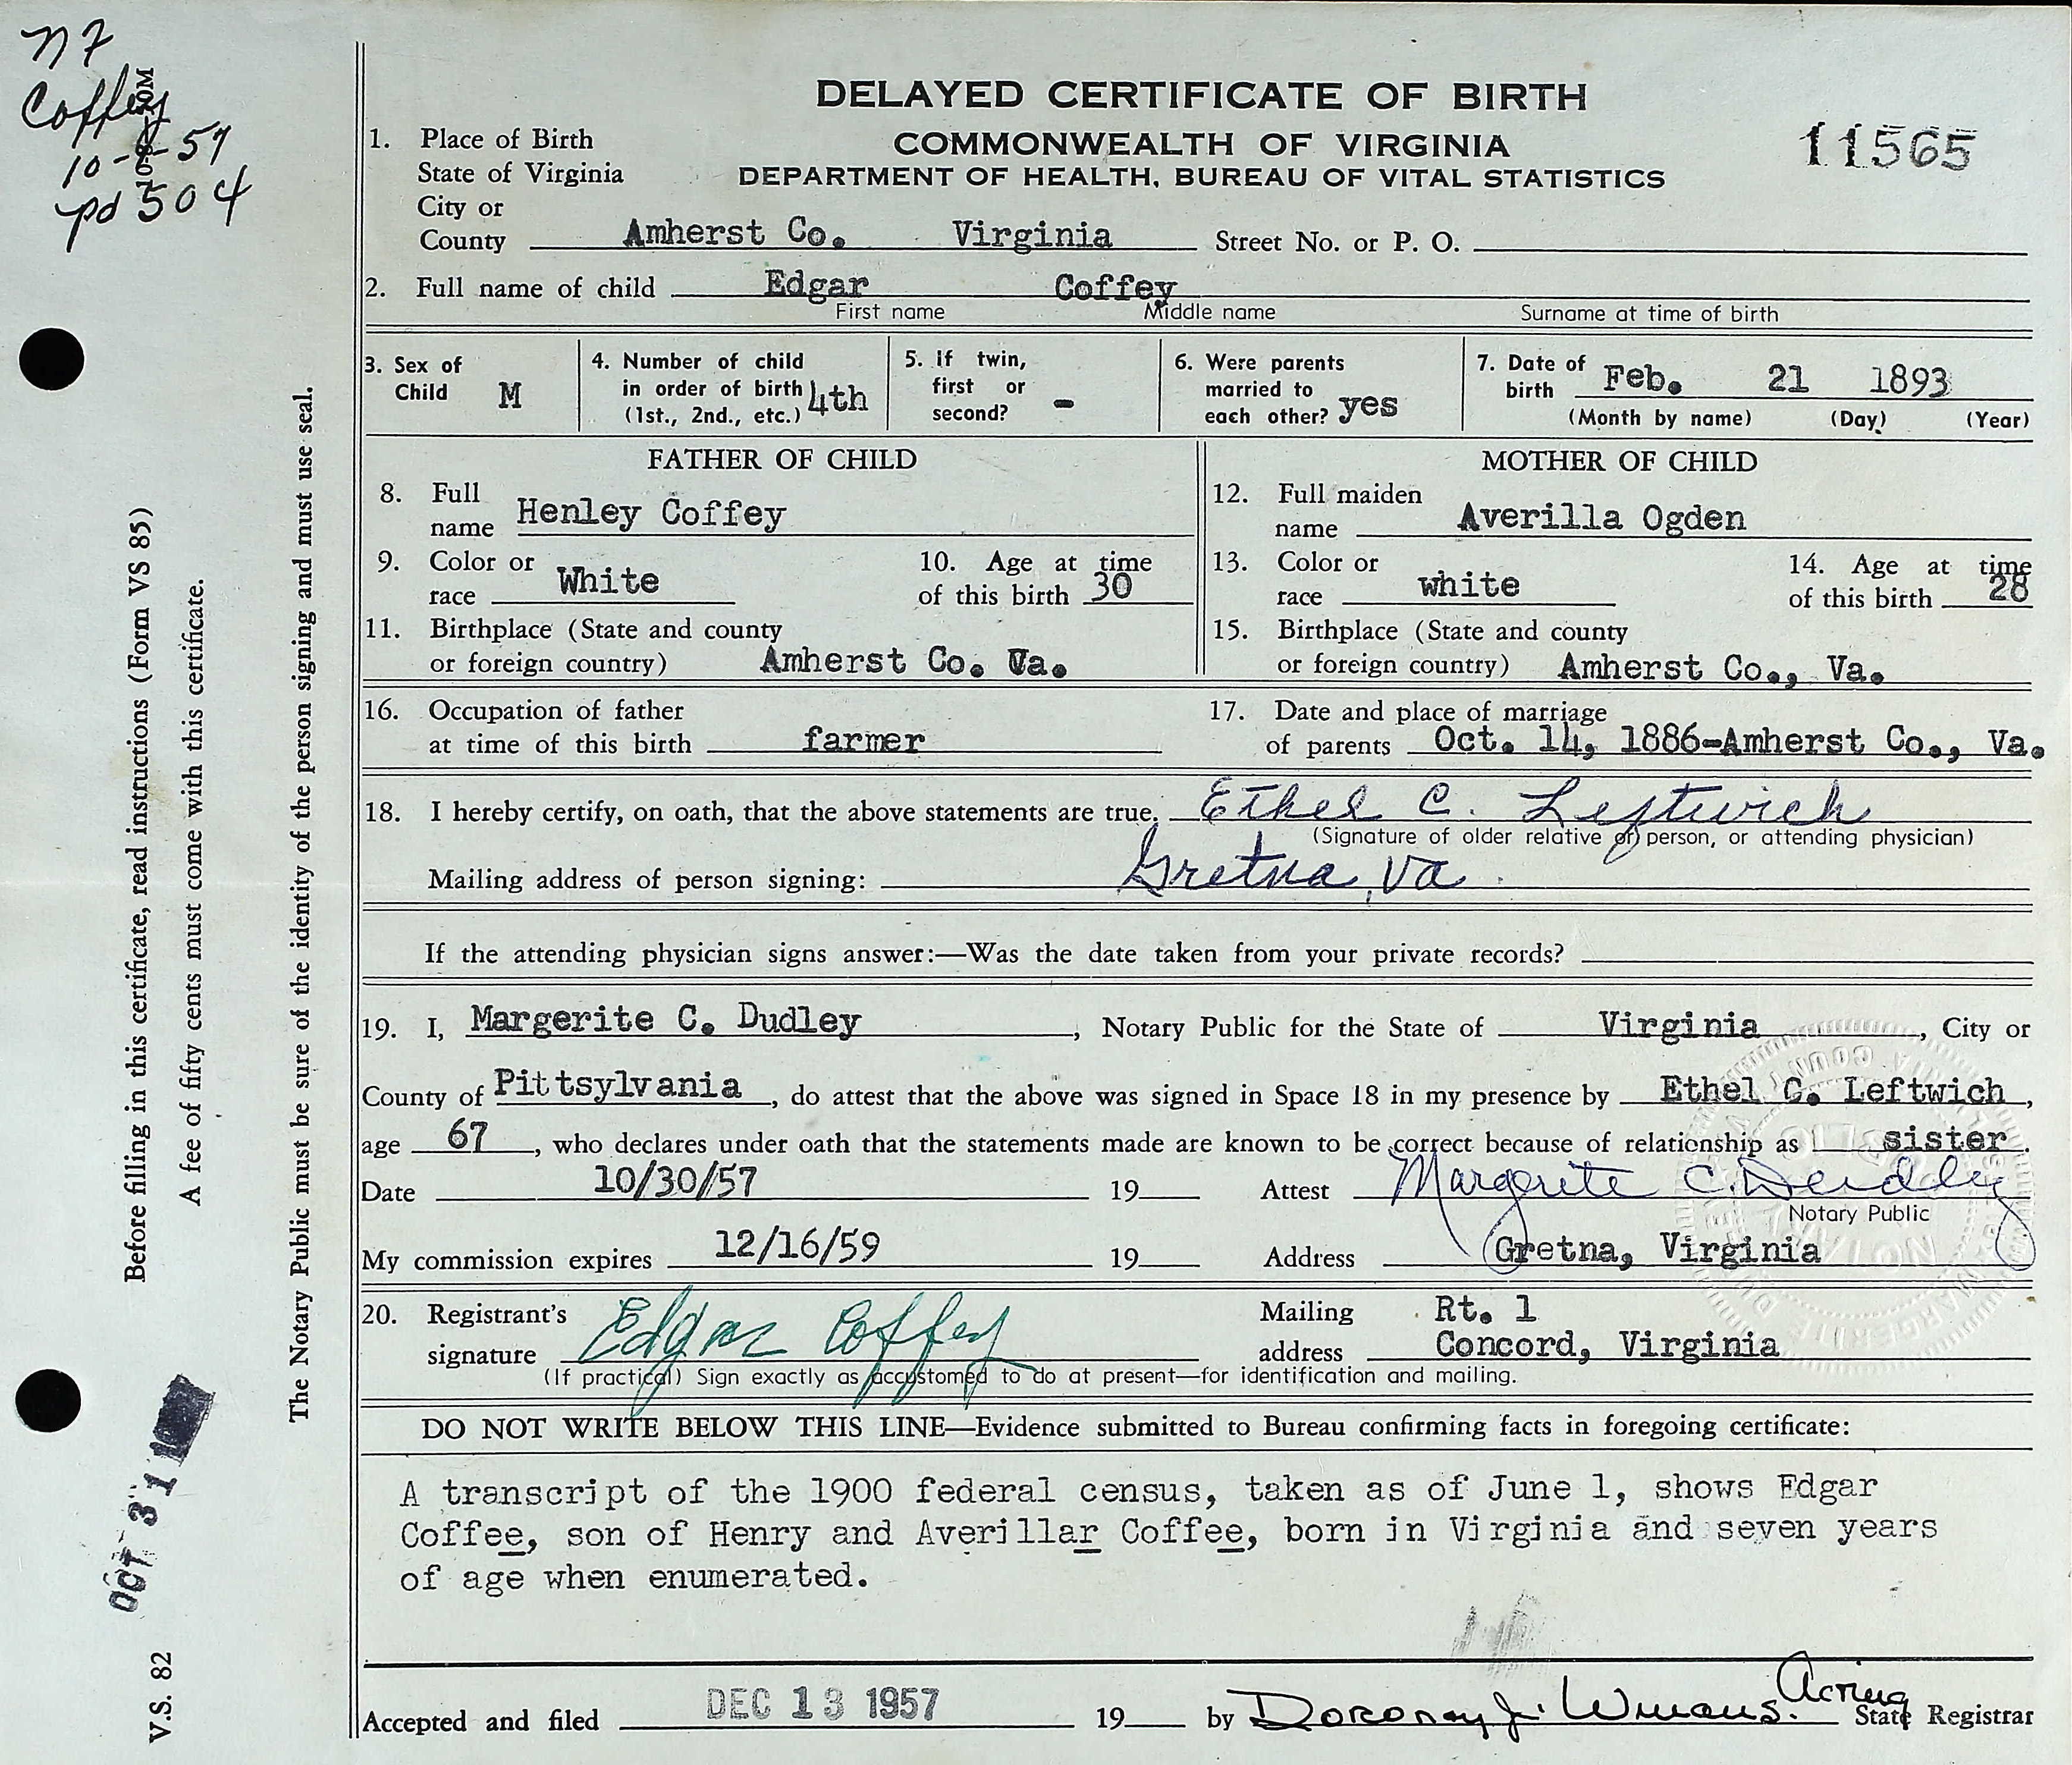 n F
Coffey
10-8-57
pd 504
DELAYED CERTIFICATE OF BIRTH
COMMONWEALTH OF VIRGINIA
DEPARTMENT OF HEALTH, BUREAU OF VITAL STATISTICS
11565
1. Place of Birth
State of Virginia
City or
County Amherst Co. Virginia Street No. or P. O.
2. Full name of child Edgar Coffey
First name Middle name Surname at time of birth
3. Sex of Child M
4. Number of child in order of birth (1st., 2nd., etc.) 4th
5. If twin, first or second? -
6. Were parents married to each other? yes
7. Date of birth Feb. 21 1893
(Month by name) (Day) (Year)
FATHER OF CHILD
8. Full name Henley Coffey
9. Color or race White
10. Age at time of this birth 30
11. Birthplace (State and county or foreign country) Amherst Co. Va.
MOTHER OF CHILD
12. Full maiden name Averilla Ogden
13. Color or race white
14. Age at time of this birth 28
15. Birthplace (State and county or foreign country) Amherst Co., Va.
16. Occupation of father at time of this birth farmer
17. Date and place of marriage of parents Oct. 14, 1886-Amherst Co., Va.
18. I hereby certify, on oath, that the above statements are true. Ethel C. Leftwich
(Signature of older relative of person, or attending physician)
Mailing address of person signing: Gretna, Va.
If the attending physician signs answer:—Was the date taken from your private records?
19. I, Margerite C. Dudley, Notary Public for the State of Virginia, City or
County of Pittsylvania, do attest that the above was signed in Space 18 in my presence by Ethel C. Leftwich,
age 67, who declares under oath that the statements made are known to be correct because of relationship as sister.
Date 10/30/57 19 Attest Margerite C. Dudley
Notary Public
My commission expires 12/16/59 19 Address Gretna, Virginia
20. Registrant's signature Edgar Coffey
Mailing address Rt. 1
Concord, Virginia
(If practical) Sign exactly as accustomed to do at present—for identification and mailing.
DO NOT WRITE BELOW THIS LINE—Evidence submitted to Bureau confirming facts in foregoing certificate:
A transcript of the 1900 federal census, taken as of June 1, shows Edgar
Coffee, son of Henry and Averillar Coffee, born in Virginia and seven years
of age when enumerated.
Accepted and filed DEC 13 1957 19 by Acting State Registrar
Before filling in this certificate, read instructions (Form VS 85)
A fee of fifty cents must come with this certificate.
The Notary Public must be sure of the identity of the person signing and must use seal.
OCT 31
V.S. 82